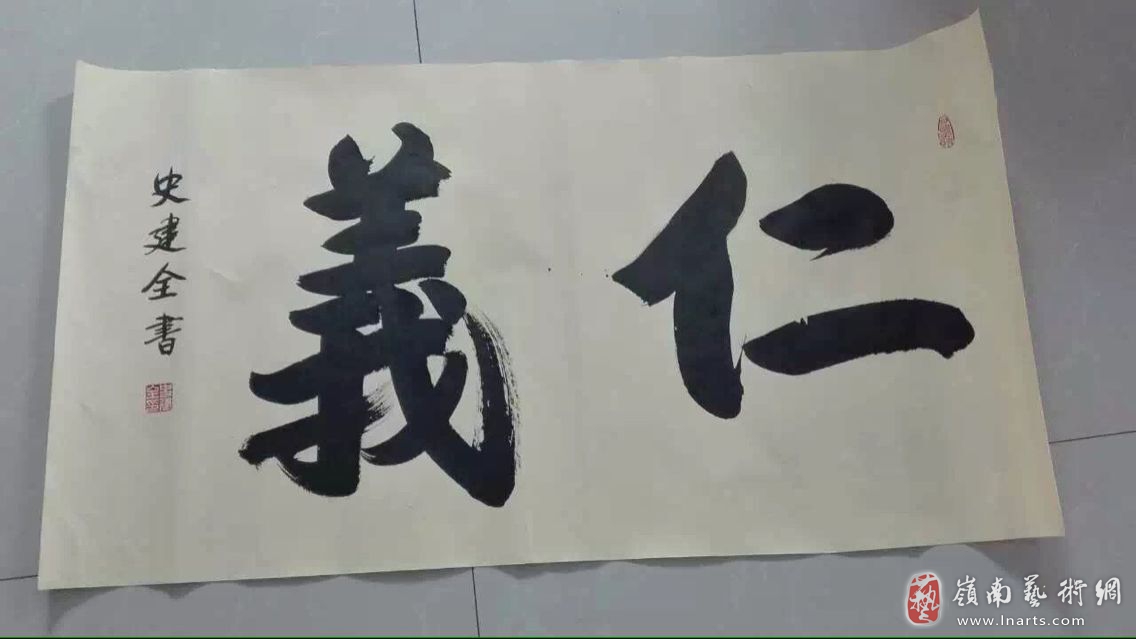 仁義
史建全書
嶺南藝術網
www.lnarts.com